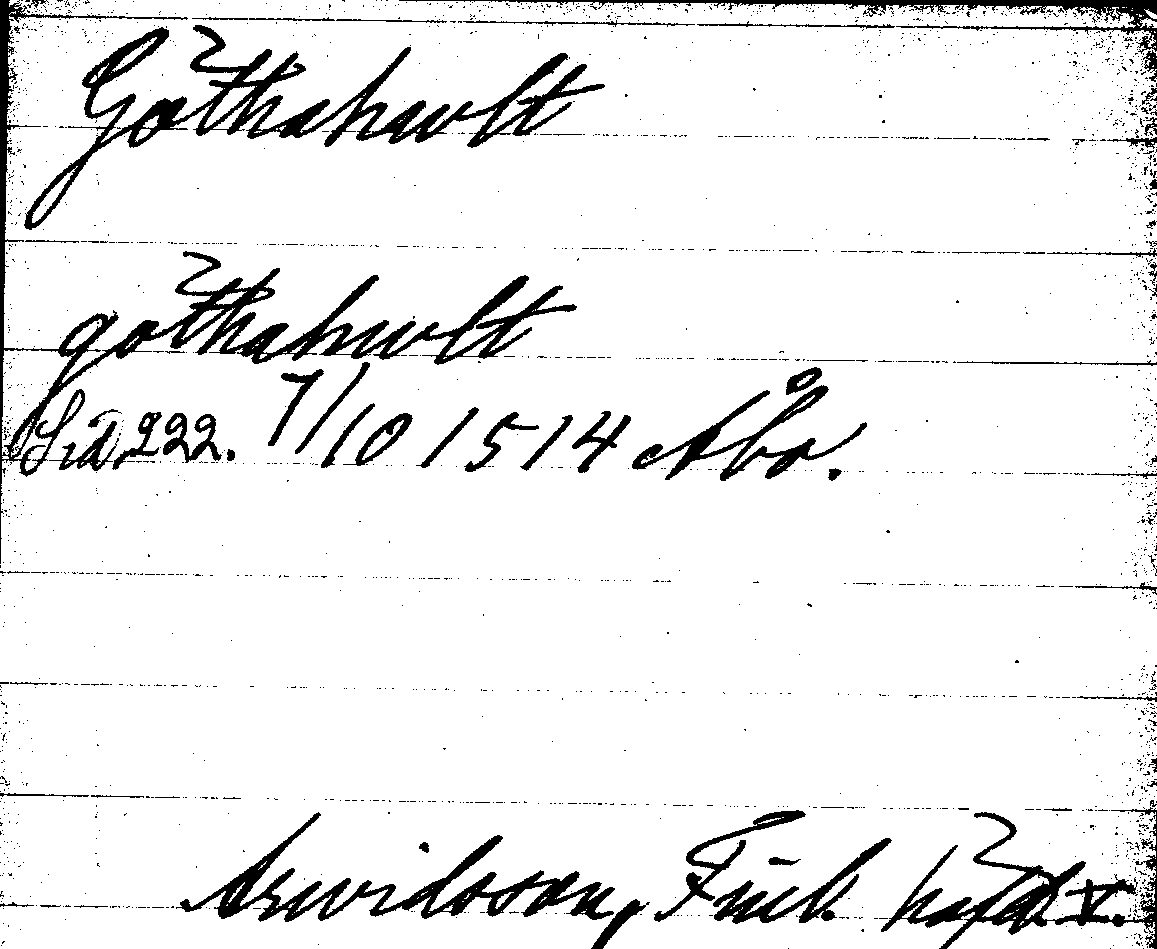 Göthahwlt
göthahwlt
Sid. 222. 7/10 1514 Åbo.
Arwidsson, Finl. häfd. V.